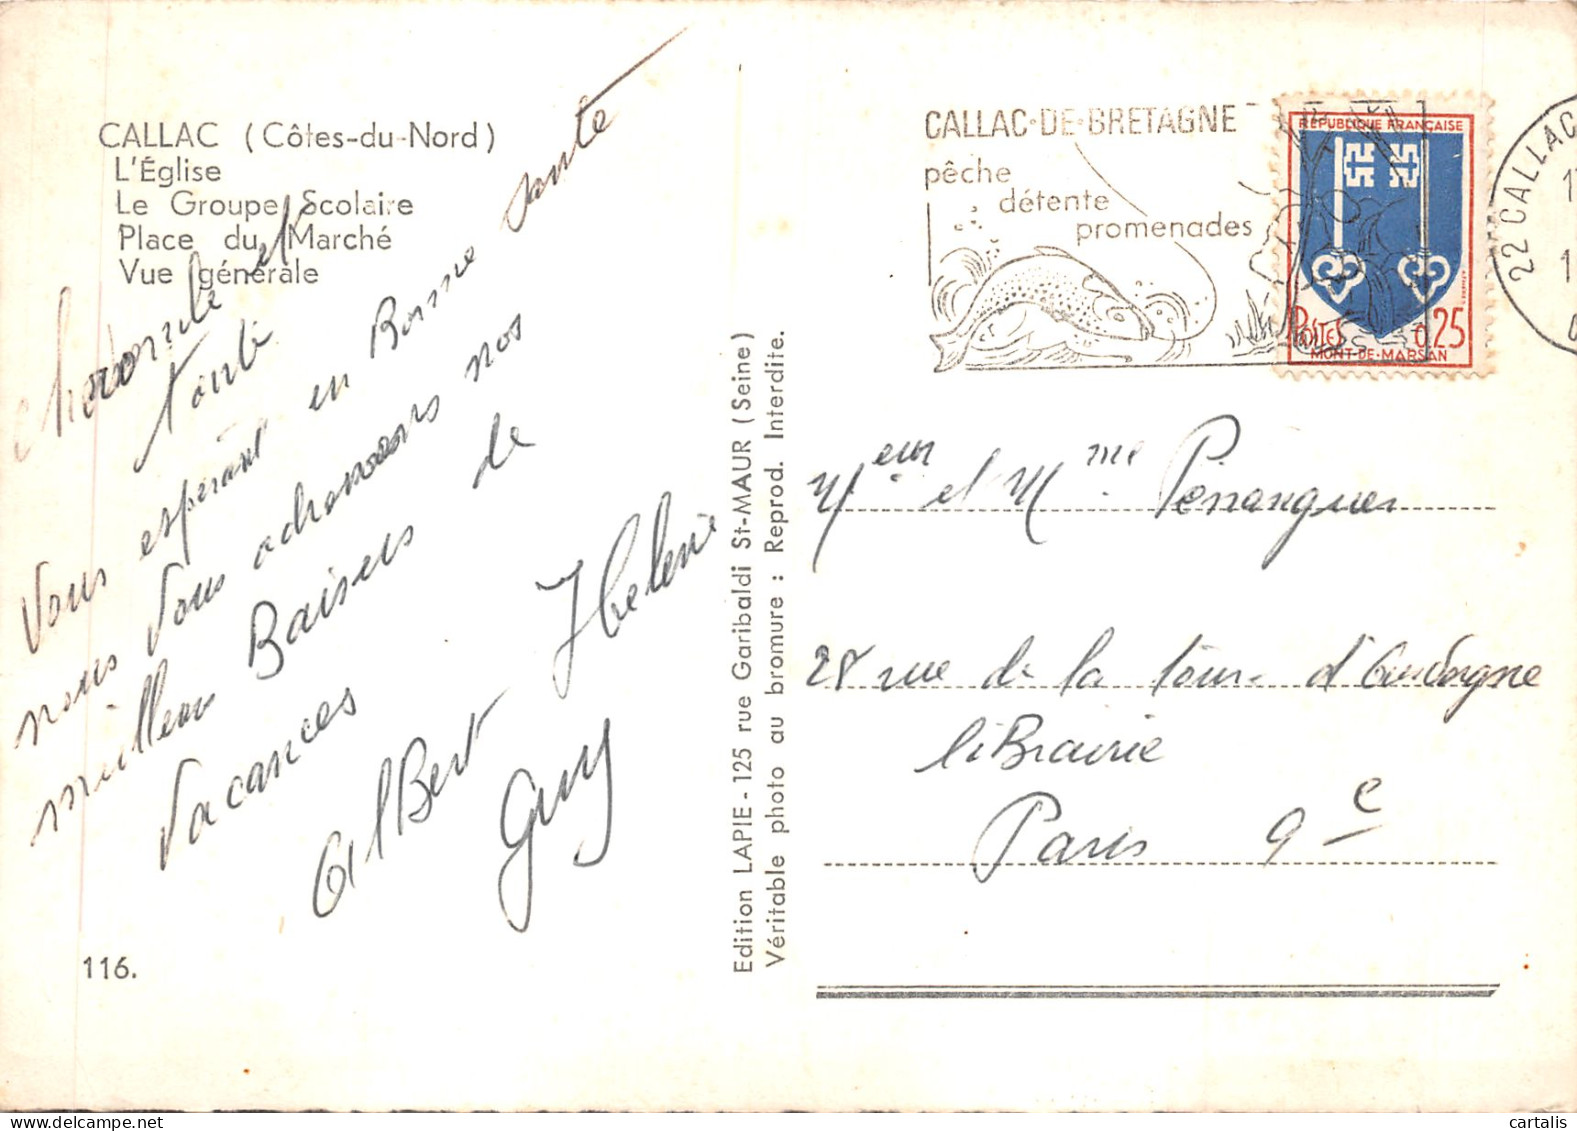 CALLAC (Côtes-du-Nord)
L'Église
Le Groupe Scolaire
Place du Marché
Vue générale
et
Vous espérant en Bonne santé
nous vous adressons nos
meilleurs Baisers de
vacances
Albert Helene
Guy
116.
Edition LAPIE - 125 rue Garibaldi St-MAUR (Seine)
Véritable photo au bromure : Reprod. Interdite.
CALLAC-DE-BRETAGNE
pêche
détente
promenades
RÉPUBLIQUE FRANÇAISE
POSTES 0,25
MONT-DE-MARSAN
22 CALLAC
Meur et Mme
28 rue de la tour d'Auvergne
liBrairie
Paris 9e
cartalis